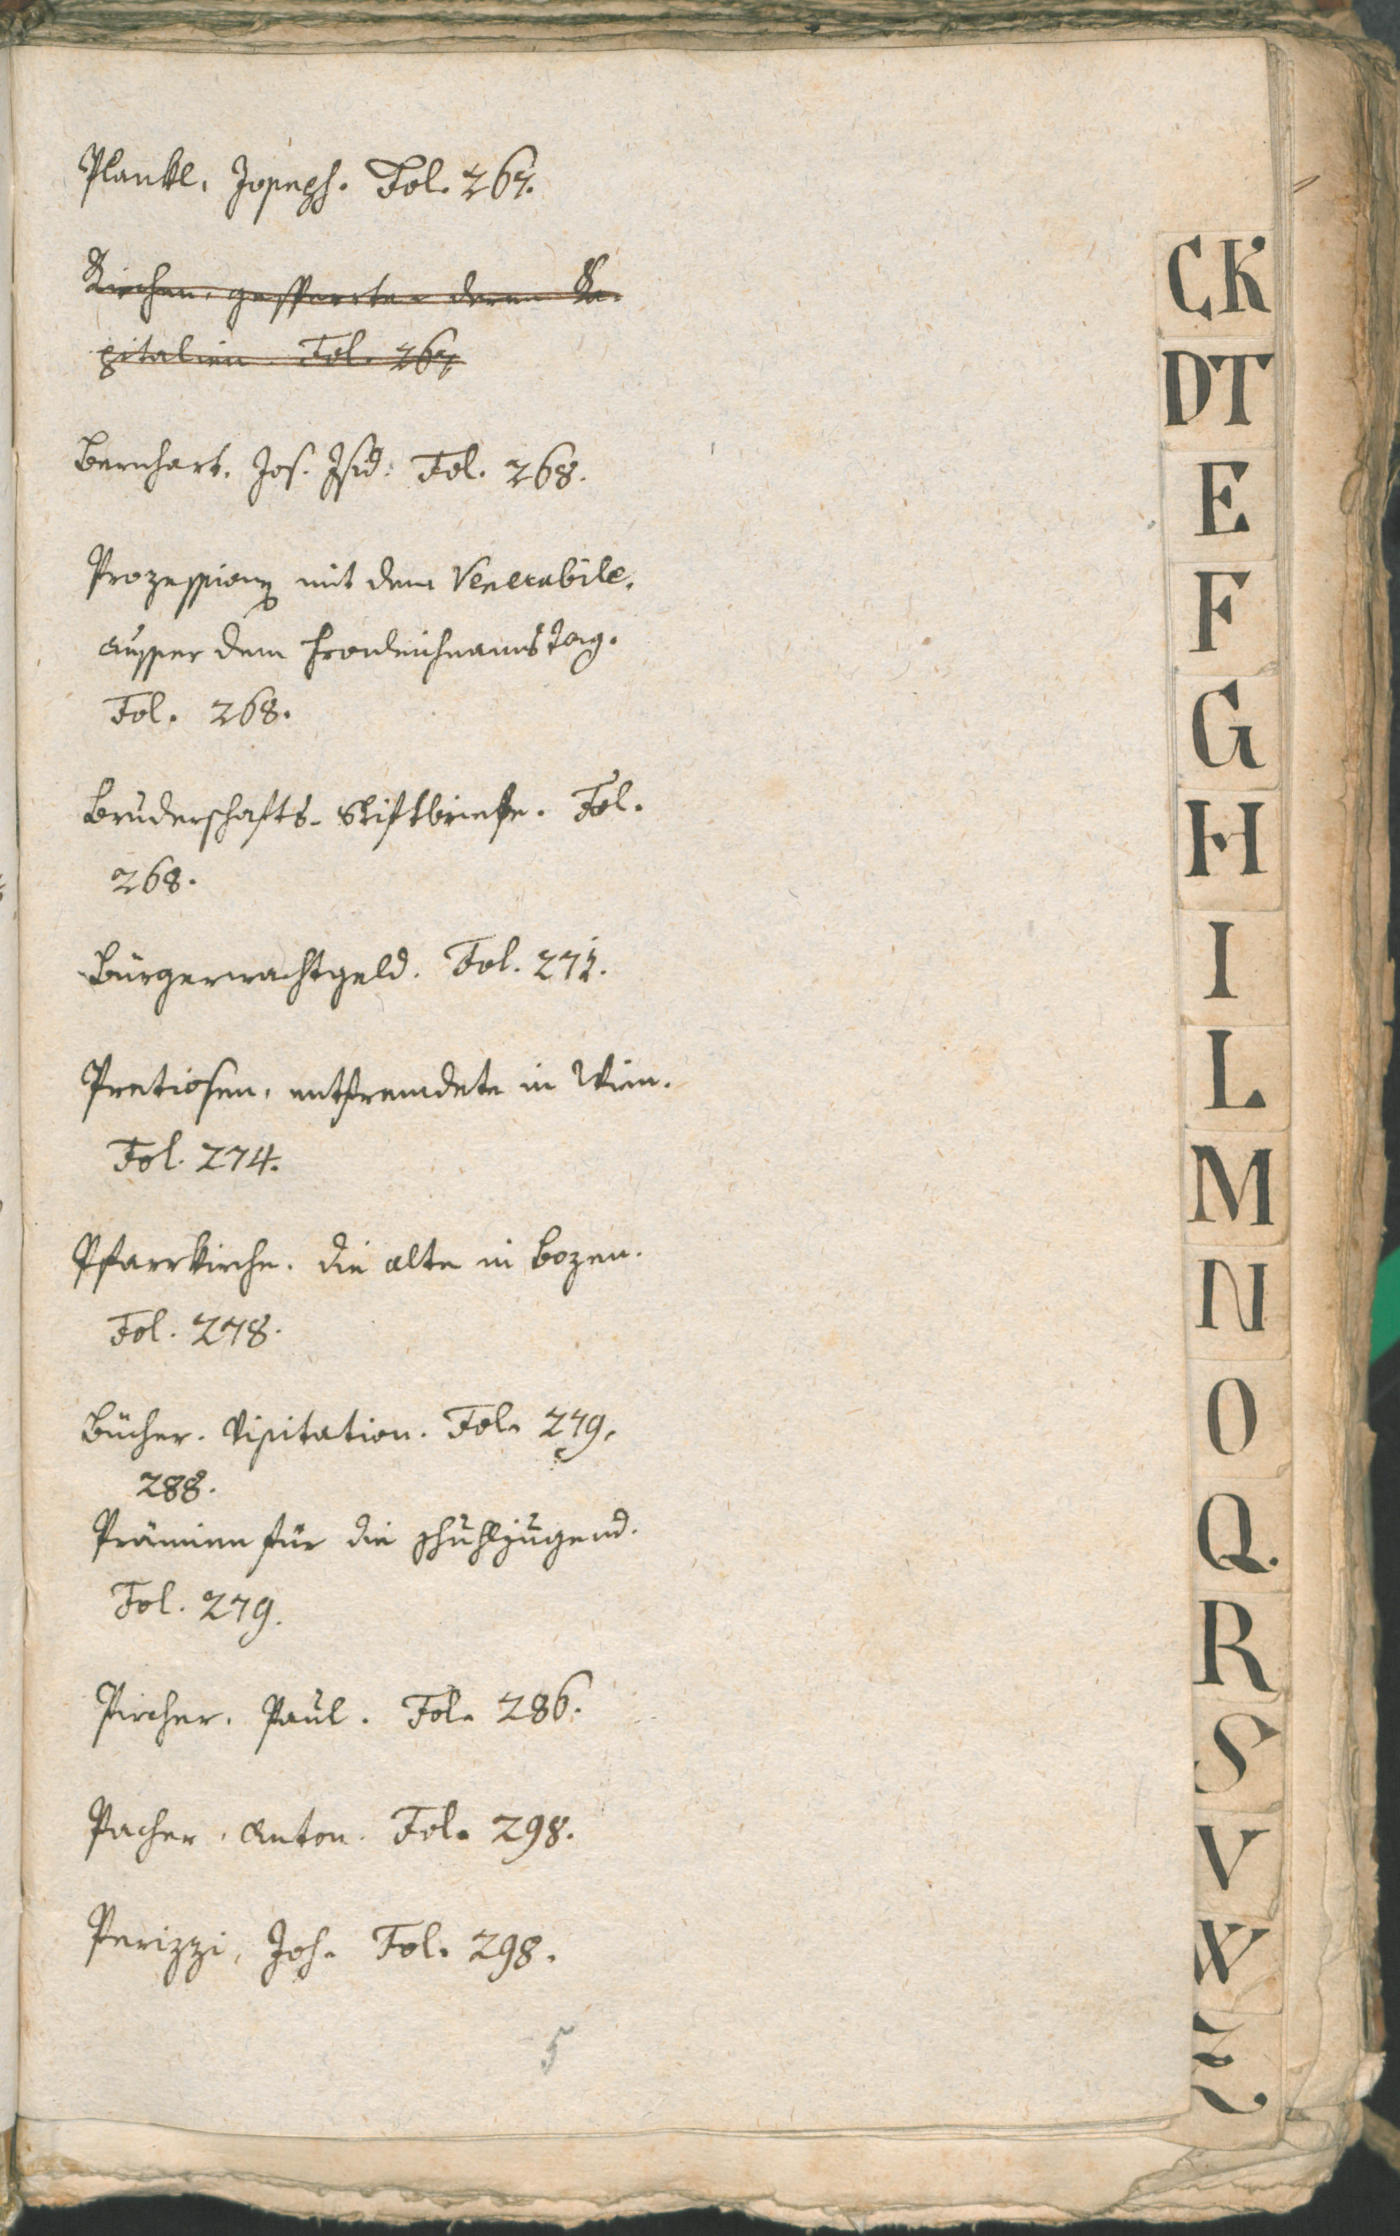 Plankl, Joseph. Fol. 267.
Kirchen, gesperrte deren Ka-
pitalien Fol. 267.
Bernhart, Jos. Isid: Fol. 268.
Prozession mit dem Venerabile,
ausser dem Fronleichnams Tag.
Fol. 268.
Bruderschafts-Stiftbriefe. Fol.
268.
Bürgerwachtgeld. Fol. 272.
Pretiosen, entfremdete in Wien.
Fol. 274.
Pfarrkirche. die alte in Bozen.
Fol. 278.
Bücher-Visitation. Fol. 279,
288.
Prämien für die Schuhljugend.
Fol. 279.
Pircher, Paul. Fol. 286.
Pacher, Anton. Fol. 298.
Perizzi, Joh. Fol. 298.
5
CK
DT
E
F
G
H
I
L
M
N
O
Q.
R
S
V
W
Z